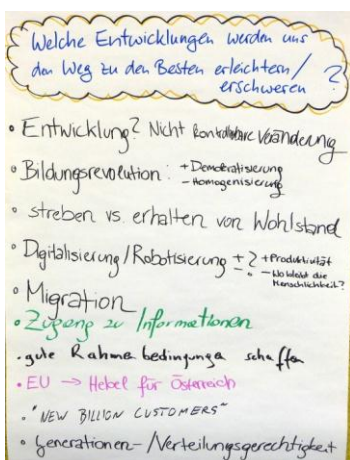 Welche Entwicklungen werden uns
den Weg zu den Besten erleichtern/
erschweren ?
• Entwicklung? Nicht kontrollierbare Veränderung
• Bildungsrevolution: + Demokratisierung
- Homogenisierung
• streben vs. erhalten von Wohlstand
• Digitalisierung/Robotisierung + - ? + Produktivität
- Wo bleibt die
Menschlichkeit?
• Migration
• Zugang zu Informationen
• gute Rahmenbedingungen schaffen
• EU → Hebel für Österreich
• "NEW BILLION CUSTOMERS"
• Generationen-/Verteilungsgerechtigkeit